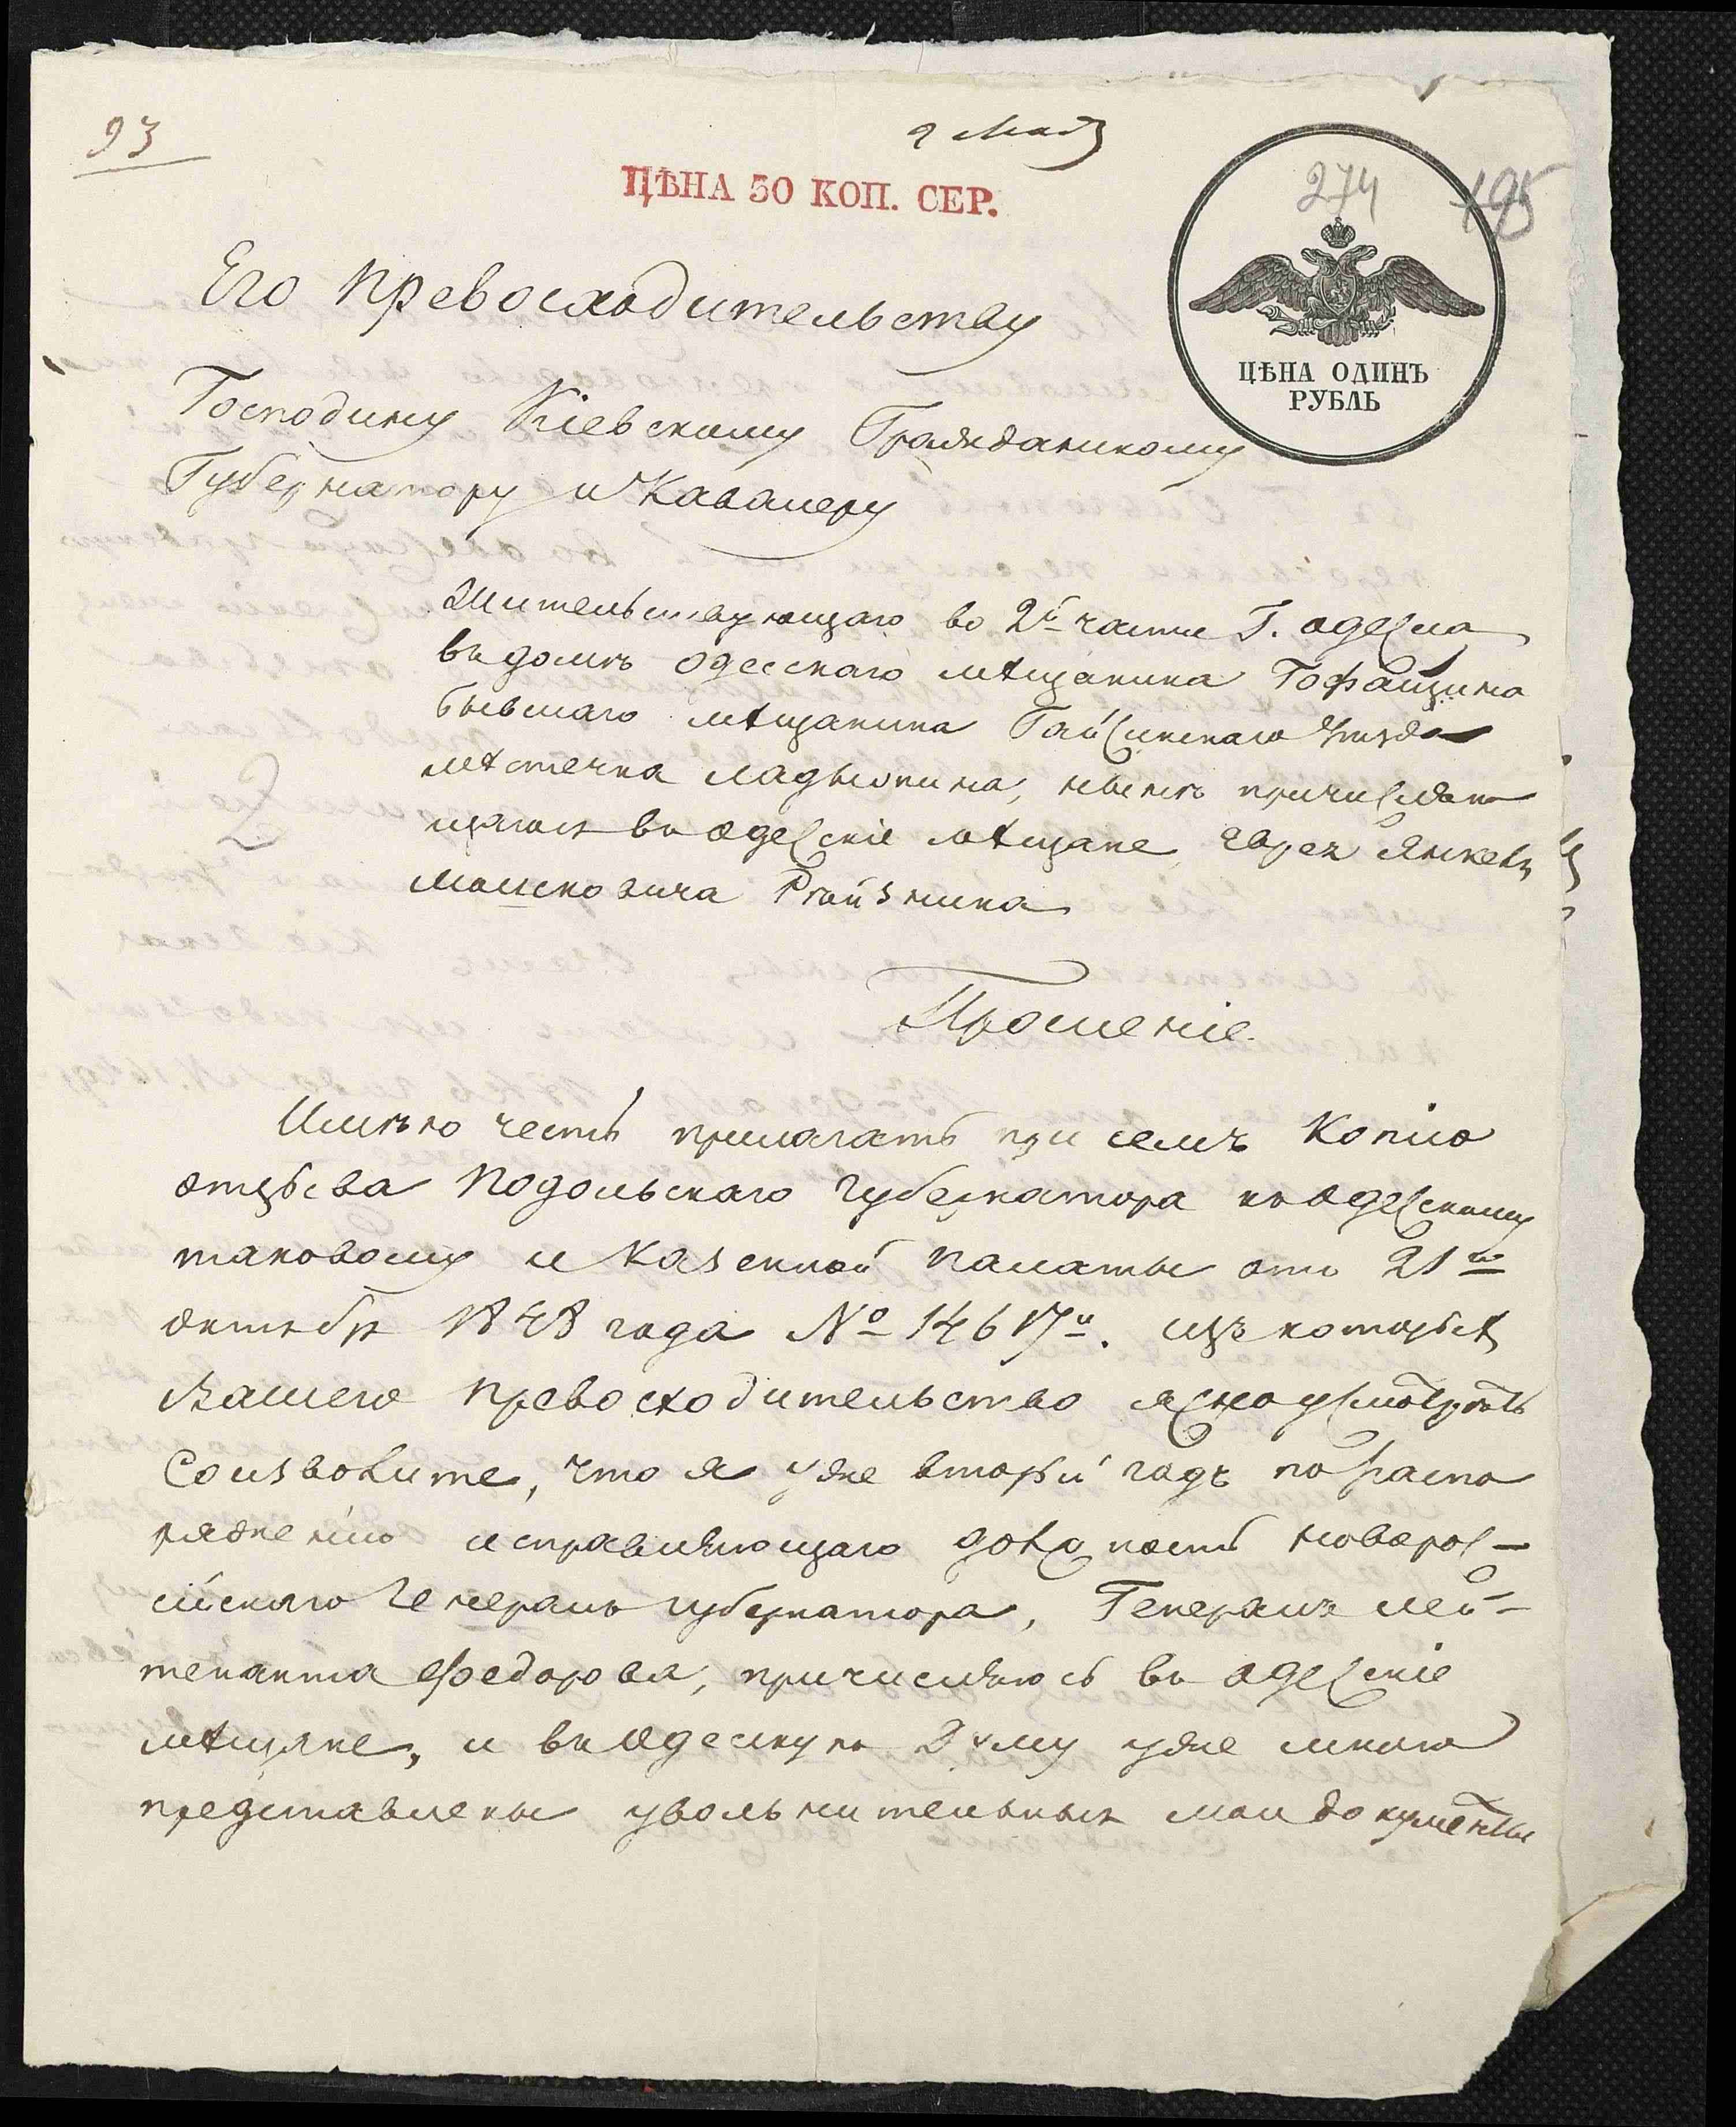 93
9 Мая
ЦѢНА 50 КОП. СЕР.
274 195
ЦѢНА ОДИНЪ
РУБЛЬ
Его Превосходительству
Господину Кіевскому Гражданскому
Губернатору и Кавалеру
Жительствующаго во 2й части Г. Одесса
въ домѣ Одесскаго мѣщанина
бывшаго мѣщанина Гайсинскаго уѣзда
мѣстечка Ладыжина, нынѣ причисляю
щагося въ Одесскіе мѣщане, Еврея Янкеля
Мошковича
Прошеніе.
Имѣю честь прилагать при семъ Копію
отзыва Подольскаго Губернатора къ Одесскому
таковому и Казенной Палаты отъ 21го
октября 1848 года № 14617м. изъ которыхъ
Вашего Превосходительство ясно усмотрѣть
Соизволите, что я уже вторый годъ по распо
ряженію исправляющаго должность Новорос-
сійскаго Генералъ Губернатора, Генералъ лей-
тенанта Федорова, причисляюсь въ Одесскіе
мѣщане, и въ Одесскую Думу уже мною
представлены увольнительныя мои документы